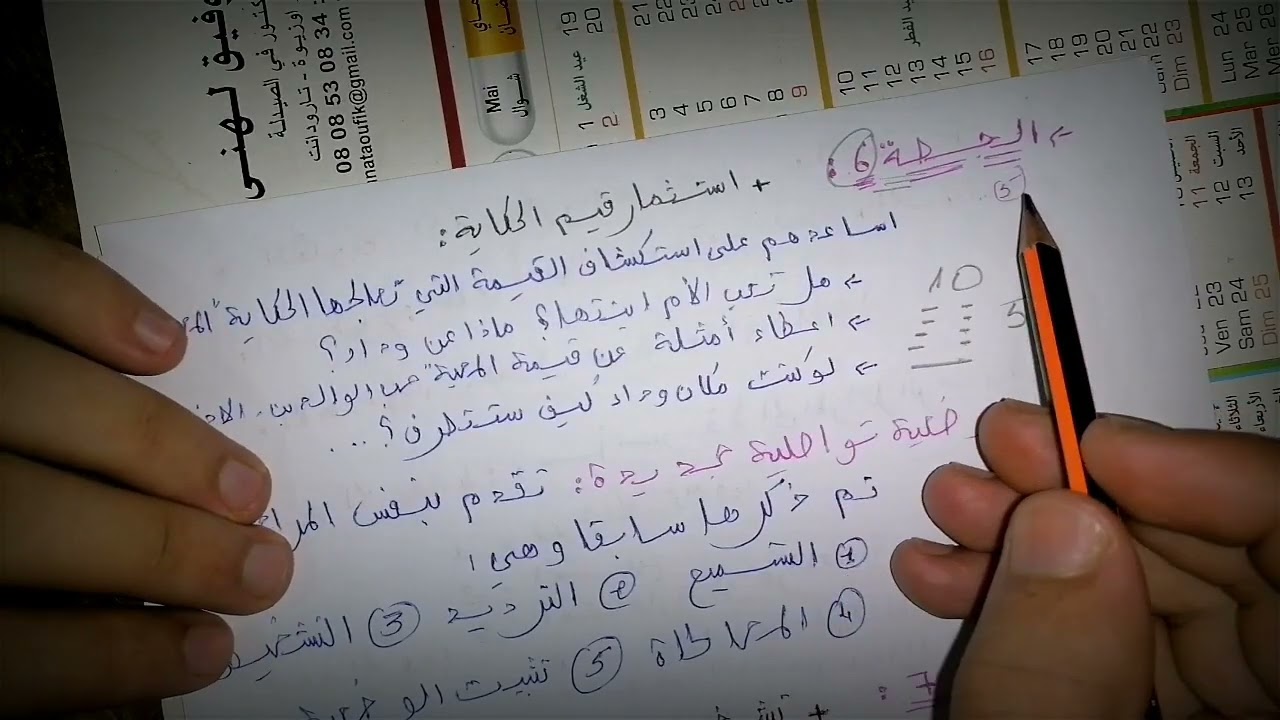 الحصة 6:
5
+ استثمار قيم الحكاية:
اساعدهم على استكشاف القيمة التي تعالجها الحكاية "
هل تحب الأم ابنتها؟ ماذا عن وداد؟
اعطاء أمثلة عن قيمة المحبة "حب الوالدين،
لو كنت مكان وداد كيف ستتصرف؟ ...
10
5
تواصلية جديدة: تقدم بنفس
تم ذكرها سابقا وهي:
1 التسميع 2 الترديد 3
4 المحاكاة 5 تثبيت
7:
+
وفيق لهنى
دكتور في الصيدلة
اوزيوة - تارودانت
08 08 53 08 34 :
nataoufik@gmail.com
Mai
شوال
1 عيد الشغل
2
19
20
21
22
23
3
4
5
6
7
8
9
10
11
12
13
14
15
16
عيد الفطر
17
18
19
20
21
22
Dim 23
الجمعة 11
السبت 12
الأحد 13
Lun 24
Mar 25
Mer 26
Ven 23
Sam 24
Dim 25
الثلاثاء
الأربعاء